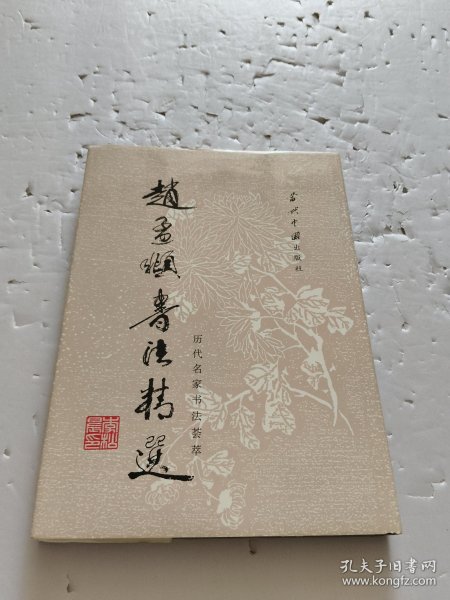 當代中國出版社
趙孟頫書法精選
历代名家书法荟萃
李松晨印
孔夫子旧书网
www.kongfz.com